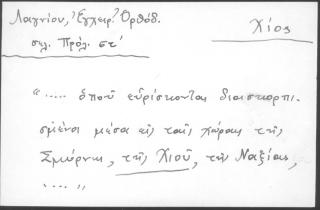 Λαγνίου, Ἐγχειρ. Ὀρθόδ.
Χίος
σελ. Πρόλ. στ'
“..... ὁποῦ εὑρίσκονται διασκορπι-
σμένοι μέσα εἰς ταῖς χώραις τῆς
Σμύρνης, τῆς Χιοῦ, τῆς Ναξίας,
..... „